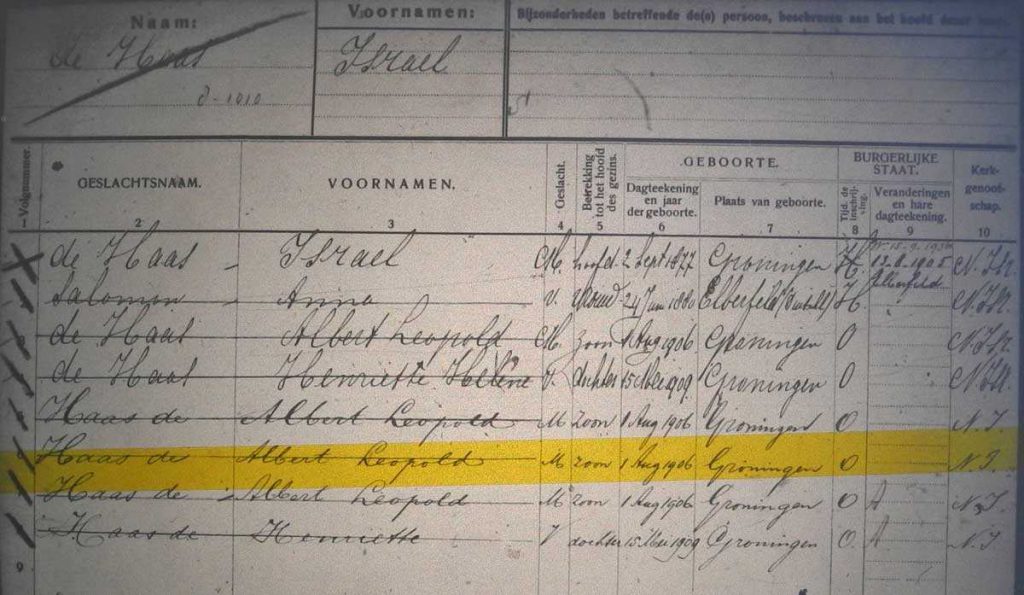 Naam:
Voornamen:
Bijzonderheden betreffende de(n) persoon,
de Haas
Israel
8-1010
Volgnummer.
GESLACHTSNAAM.
VOORNAMEN.
Geslacht.
Betrekking tot het hoofd des gezins.
GEBOORTE.
Dagteekening en jaar der geboorte.
Plaats van geboorte.
BURGERLIJKE STAAT.
Tijd. de inschrijving.
Veranderingen en hare dagteekening.
Kerkgenootschap.
1 2 3 4 5 6 7 8 9 10
de Haas Israel M. hoofd 2 Sept 1877 Groningen H. N.Isr.
Salomon Anna V. Elberfeld H N.Isr.
de Haas Albert Leopold M. zoon 1 Aug 1906 Groningen O N.Isr.
de Haas Henriette Helène V. dochter 1909 Groningen O N.Isr.
Haas de Albert Leopold M zoon 1 Aug 1906 Groningen O N.I.
Haas de Albert Leopold M zoon 1 Aug 1906 Groningen O N.I.
Haas de Albert Leopold M zoon 1 Aug 1906 Groningen O A N.I.
Haas de Henriette V dochter 15 Mei 1909 Groningen O. A N.I
9